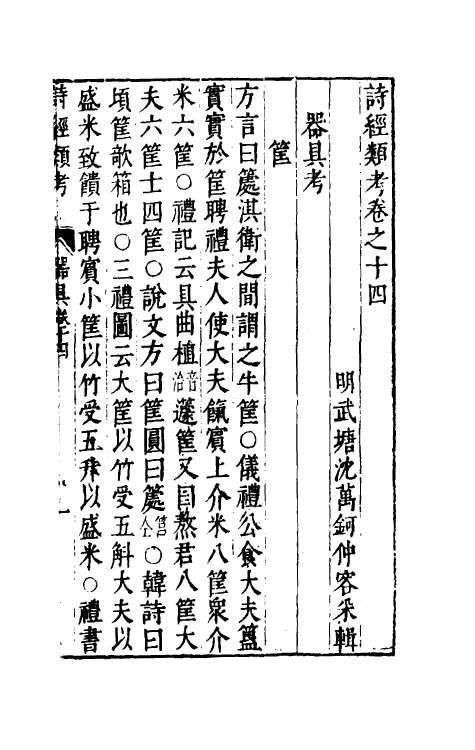 詩經類考卷之十四
明武塘沈萬鈳仲容采輯
器具考
筐
方言曰籧淇衛之間謂之牛筐○儀禮公食大夫簋
實實於筐聘禮夫人使大夫餼賓上介米八筐衆介
米六筐○禮記云具曲植音治籧筐又曰熬君八筐大
夫六筐士四筐○說文方曰筐圓曰籧○韓詩曰
頃筐欹箱也○三禮圖云大筐以竹受五斛大夫以
盛米致饋于聘賓小筐以竹受五升以盛米○禮書
詩經類考 器具卷十四